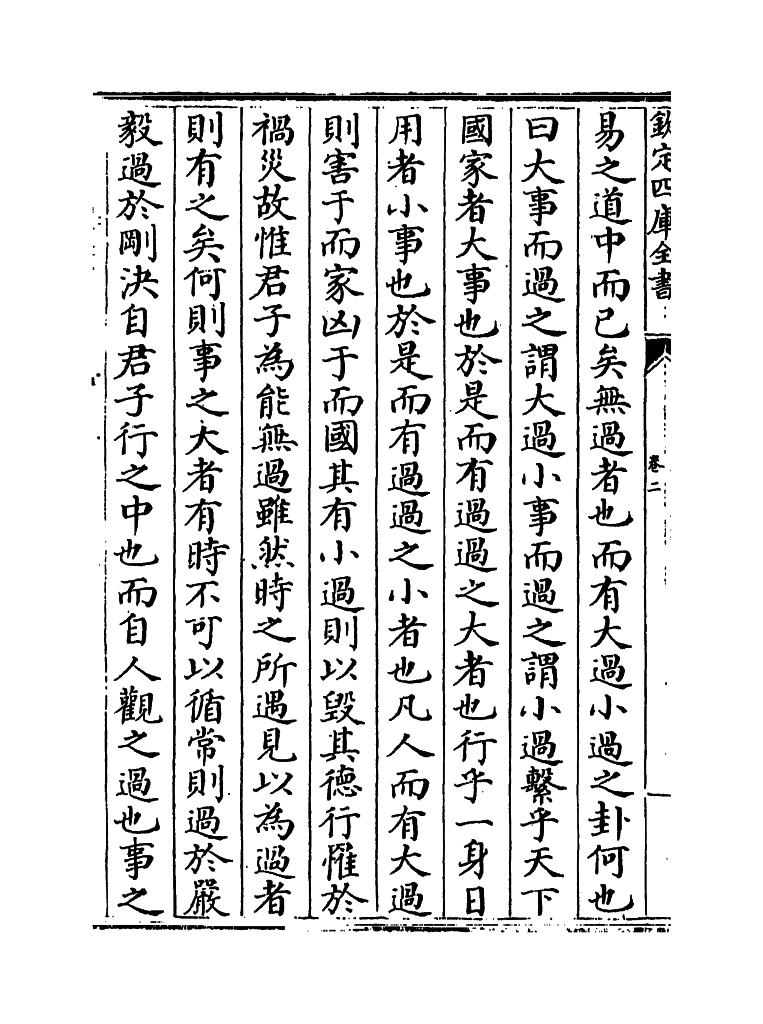 欽定四庫全書
卷二
易之道中而已矣無過者也而有大過小過之卦何也
曰大事而過之謂大過小事而過之謂小過繫乎天下
國家者大事也於是而有過過之大者也行乎一身日
用者小事也於是而有過過之小者也凡人而有大過
則害于而家凶于而國其有小過則以毀其德行罹於
禍災故惟君子為能無過雖然時之所遇見以為過者
則有之矣何則事之大者有時不可以循常則過於嚴
毅過於剛決自君子行之中也而自人觀之過也事之